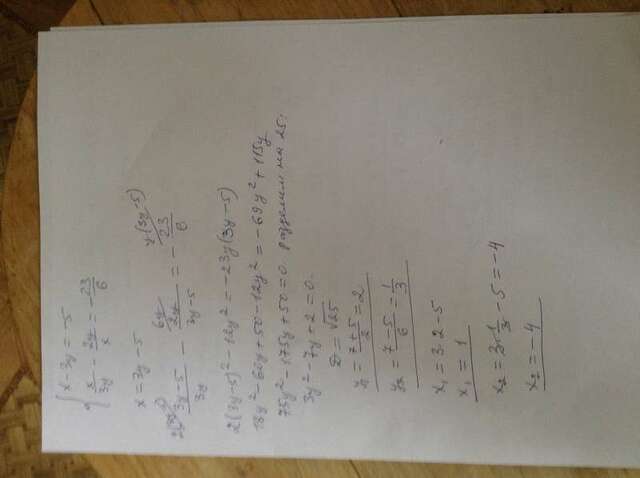 { x - 3y = -5
x/3y - 2y/x = -23/6
x = 3y - 5
3y-5/3y - 2y/3y-5 = -23/6
2(3y-5)² - 12y² = -23y(3y-5)
18y² - 60y + 50 - 12y² = -69y² + 115y
75y² - 175y + 50 = 0 разделим на 25.
3y² - 7y + 2 = 0.
D = √25
y₁ = 7+5/2 = 2
y₂ = 7-5/6 = 1/3
x₁ = 3·2-5
x₁ = 1
x₂ = 3·1/3 - 5 = -4
x₂ = -4